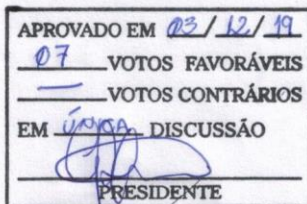 APROVADO EM 03/12/19
07 VOTOS FAVORÁVEIS
— VOTOS CONTRÁRIOS
EM ÚNICA DISCUSSÃO
PRESIDENTE